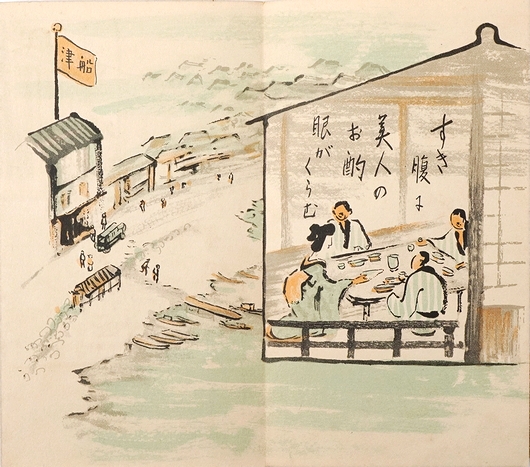 すき腹に
美人の
お酌
眼がくらむ
船津